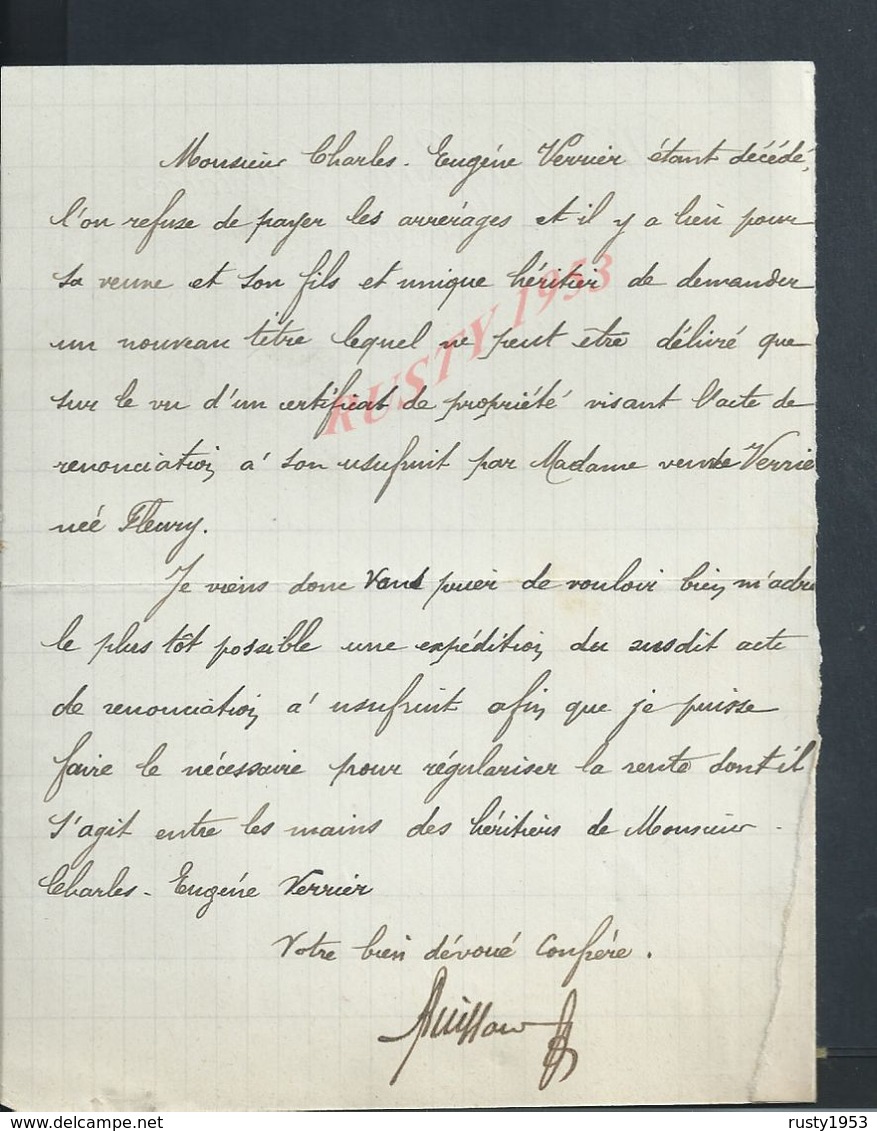 Monsieur Charles-Eugéne Verrier étant décédé,
l'on refuse de payer les arrérages et il y a lieu pour
sa veuve et son fils et unique héritier de demander
un nouveau titre lequel ne peut être délivré que
sur le vu d'un certificat de propriété visant l'acte de
renonciation à son usufruit par Madame veuve Verrie
née Fleury.
Je viens donc vous prier de vouloir bien m'adre
le plus tôt possible une expédition du susdit acte
de renonciation à usufruit afin que je puisse
faire le nécessaire pour régulariser la rente dont il
s'agit entre les mains des héritiers de Monsieur
Charles-Eugéne Verrier
Votre bien dévoué Confrére.
RUSTY 1953
delcampe.net
rusty1953